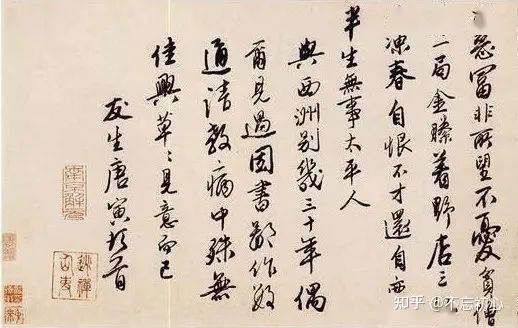 富非所望不憂貧僧
局金縢著野店三
凍春自恨不才還自
半生無事太平人
與西洲別幾三十年偶
爾見過因書鄙作
通請教病中殊無
佳興草々見意而已
友生唐寅頓首
南京解元
知乎 @不忘初心